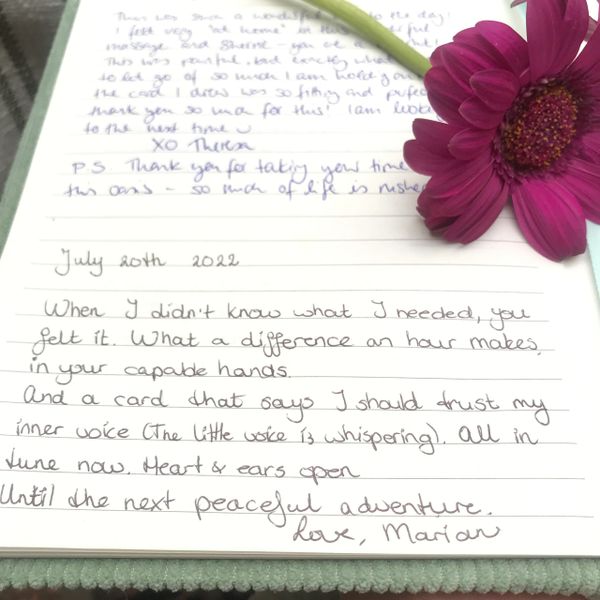 This was such a wonderful to the day!
I felt very "at home" in this
massage and
This was painful, but exactly what
to let go of so much I am holding
the card I drew was so fitting and
thank you so much for this! I am
to the next time
XO Theresa
P.S Thank you for taking your time
this oasis - so much of life is rushed
July 20th 2022
When I didn't know what I needed, you
felt it. What a difference an hour makes
in your capable hands.
And a card that says I should trust my
inner voice (The little voice is whispering). All in
tune now. Heart & ears open
Until the next peaceful adventure.
Love, Marian